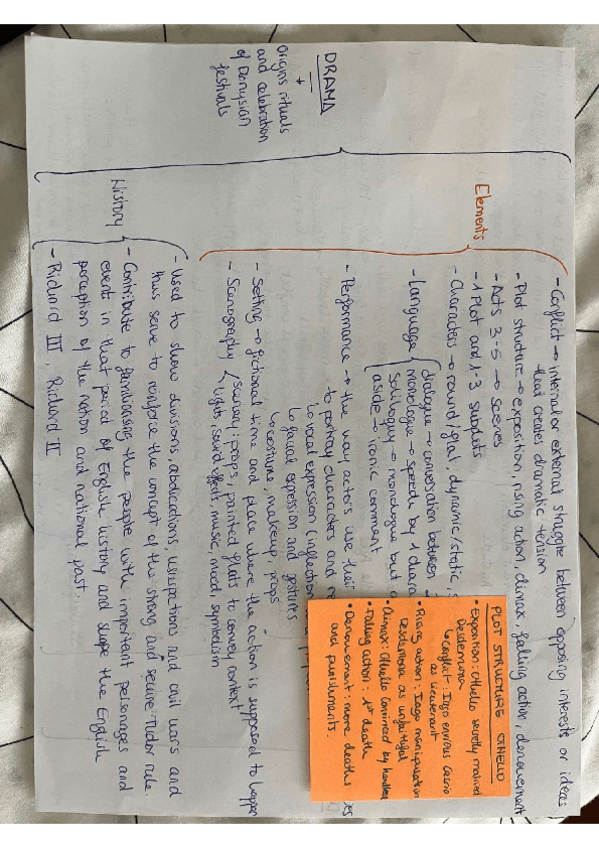 DRAMA
Origins rituals
and celebration
of Dionysian
festivals
Elements
- Conflict → internal or external struggle between opposing interests or ideas
that creates dramatic tension
- Plot structure → exposition, rising action, climax, falling action, denouement
- Acts 3-5 → scenes
- 1 Plot and 1-3 subplots
- Characters → round/flat, dynamic/static,
- Language
dialogue → conversation between
monologue → speech by 1
soliloquy → monologue but
aside → ironic comment
- Performance → the way actors use their
to portray characters and
↳ vocal expression (inflection
↳ facial expression and gestures
↳ costume, makeup, props
- Setting → fictional time and place where the action is supposed to happen
- Scenography
scenery: props, painted flats to convey context
lights, sound effects, music, mood, symbolism
PLOT STRUCTURE OTHELLO
• Exposition: Othello secretly married
Desdemona
↳ Conflict: Iago envious Cassio
as lieutenant
• Rising action: Iago manipulation
Desdemona as unfaithful
• Climax: Othello convinced by
• Falling action: 1st death
• Denouement: more deaths
and punishments.
History
- Used to show divisions, abdications, usurpations and civil wars and
thus serve to reinforce the concept of the strong and secure Tudor rule.
- Contribute to familiarising the people with important personages and
event in that period of English history and shape the English
perception of the nation and national past.
- Richard III, Richard II